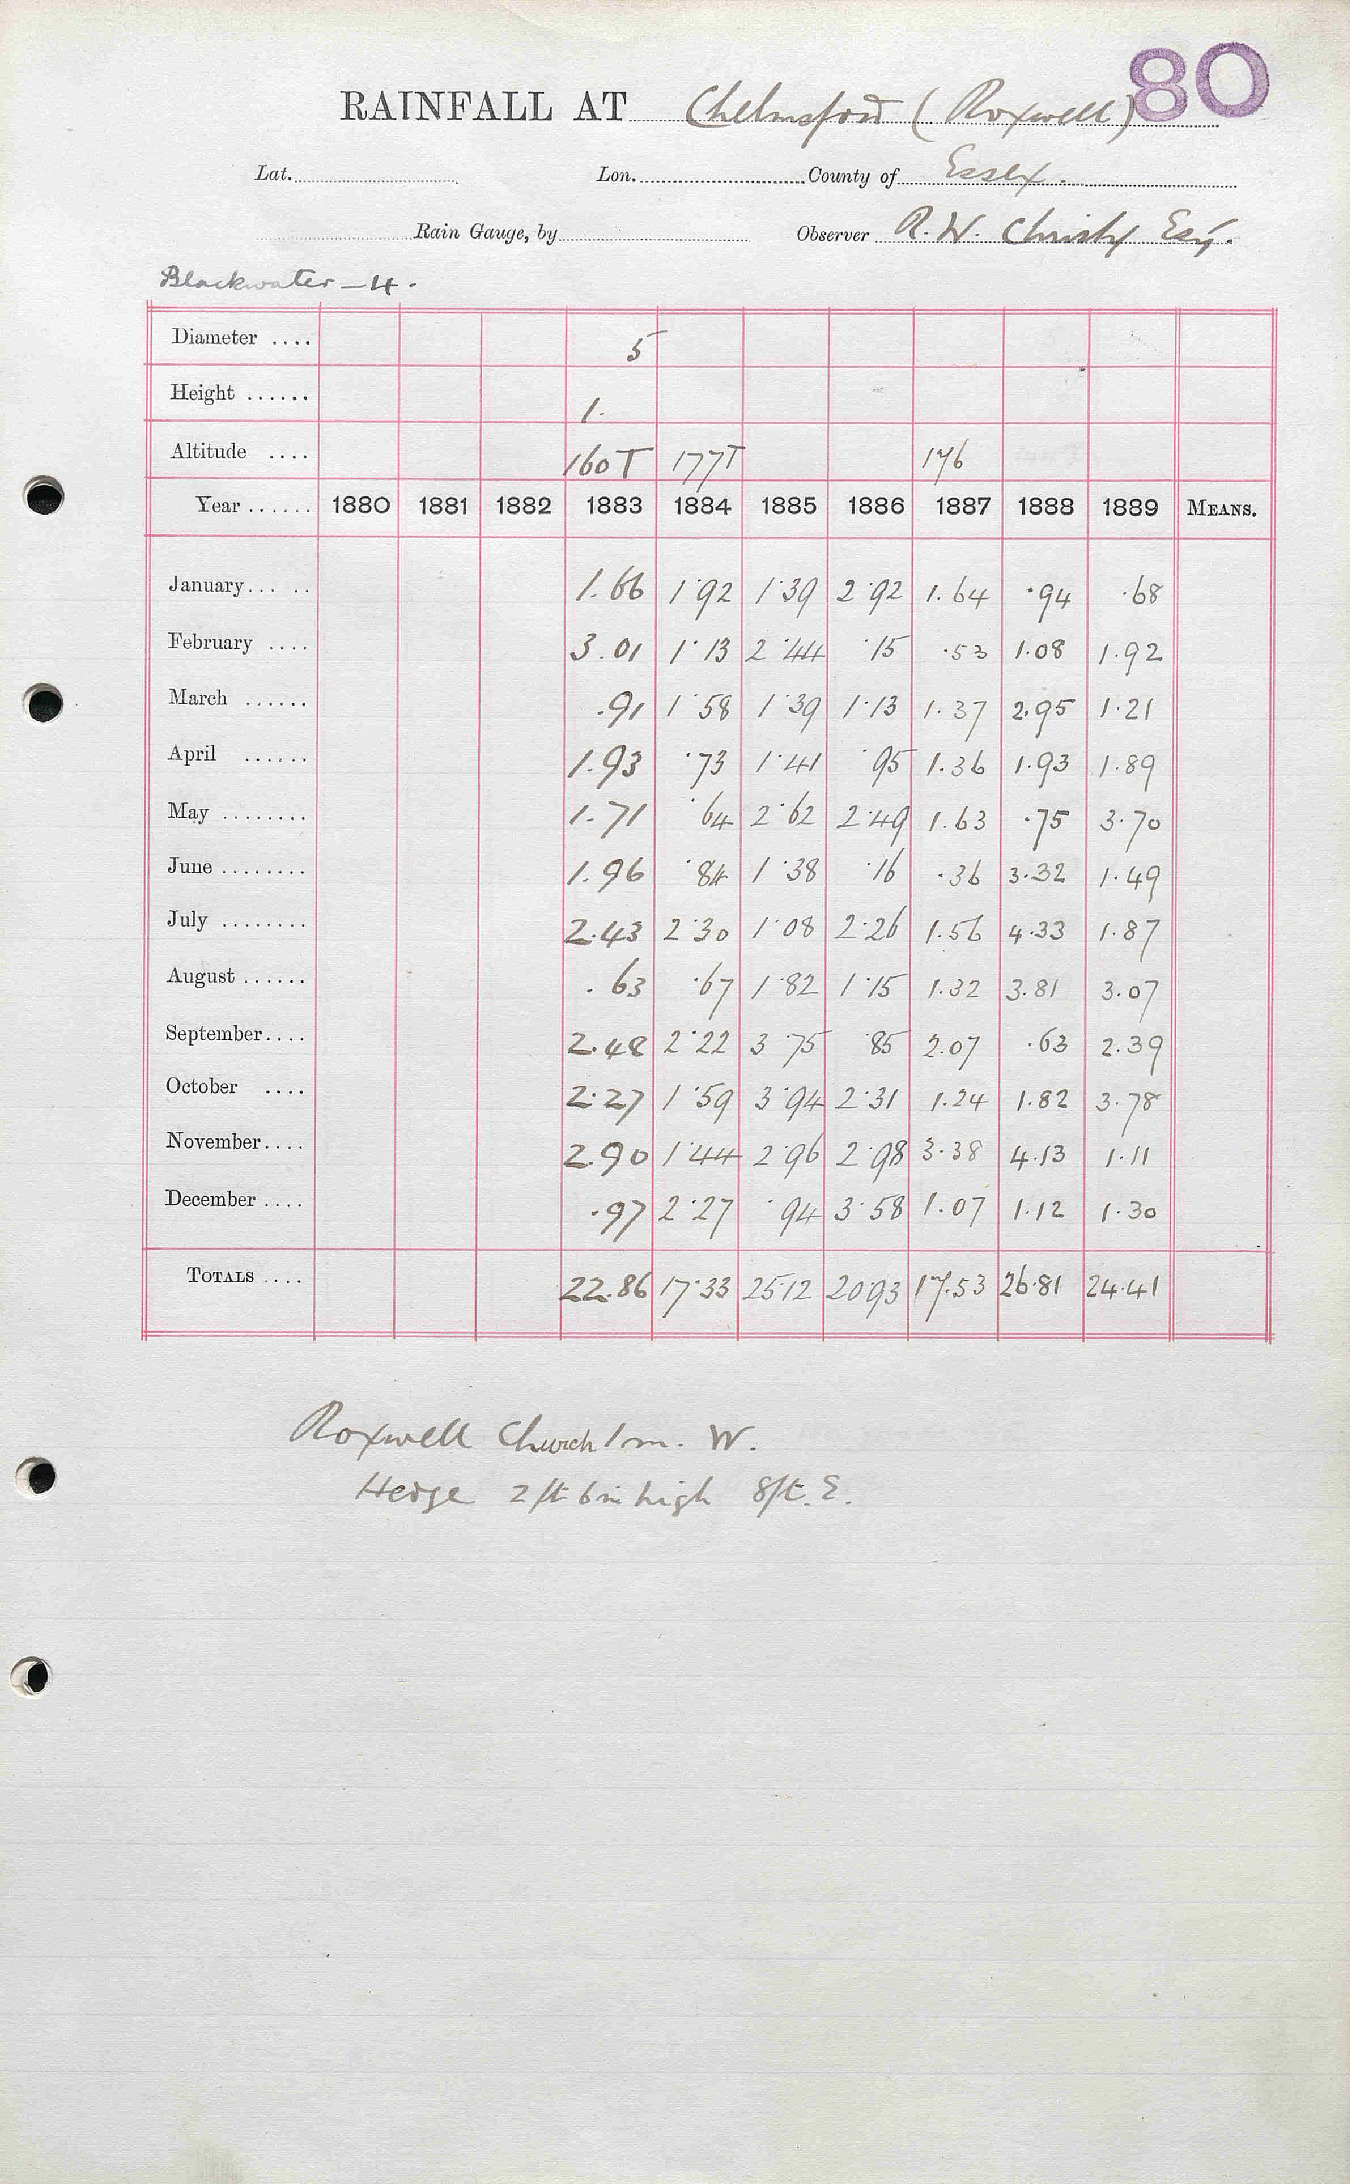 80
RAINFALL AT Chelmsford (Roxwell)
Lat. Lon. County of Essex.
Rain Gauge, by Observer R. W. Christy Esq.
Blackwater - 4.
Diameter .... 5
Height ...... 1.
Altitude .... 160T 177T 176
Year ...... 1880 1881 1882 1883 1884 1885 1886 1887 1888 1889 MEANS.
January... .. 1.66 1.92 1.39 2.92 1.64 .94 .68
February .... 3.01 1.13 2.44 .15 .53 1.08 1.92
March ...... .91 1.58 1.39 1.13 1.37 2.95 1.21
April ...... 1.93 .73 1.41 .95 1.36 1.93 1.89
May ........ 1.71 .64 2.62 2.49 1.63 .75 3.70
June ........ 1.96 .84 1.38 .16 .36 3.32 1.49
July ........ 2.43 2.30 1.08 2.26 1.56 4.33 1.87
August ...... .63 .67 1.82 1.15 1.32 3.81 3.07
September.... 2.48 2.22 3.75 .85 2.07 .63 2.39
October .... 2.27 1.59 3.94 2.31 1.24 1.82 3.78
November.... 2.90 1.44 2.96 2.98 3.38 4.13 1.11
December .... .97 2.27 .94 3.58 1.07 1.12 1.30
TOTALS .... 22.86 17.33 25.12 20.93 17.53 26.81 24.41
Roxwell Church 1 m. W.
Hedge 2 ft 6 in high 8 ft. E.